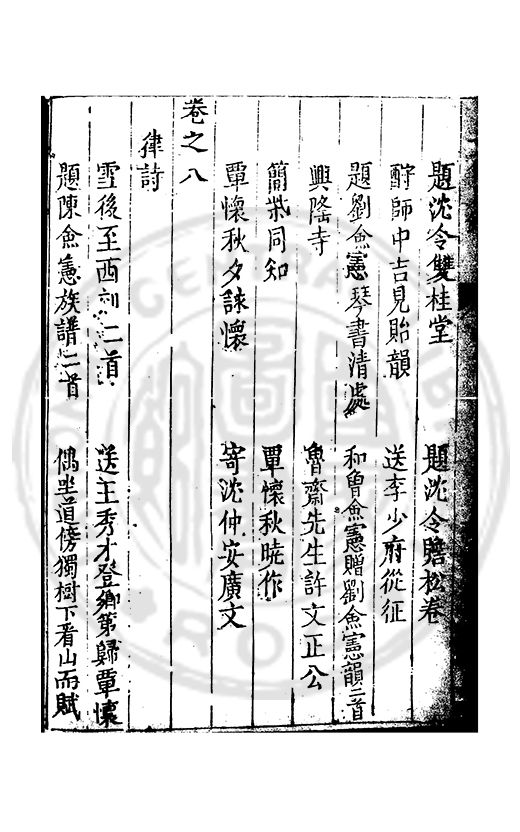 題沈令雙桂堂　題沈令贍松卷
酧師中吉見貽韻　送李少府從征
題劉僉憲琴書清處　和曾僉憲贈劉僉憲韻二首
興隆寺　魯齋先生許文正公
簡 同知　覃懷秋曉作
覃懷秋夕諫懷　寄沈仲安廣文
卷之八
律詩
雪後至西 二首　送王秀才登鄉第歸覃懷
題陳僉憲族譜二首　偶坐道傍獨樹下看山而賦